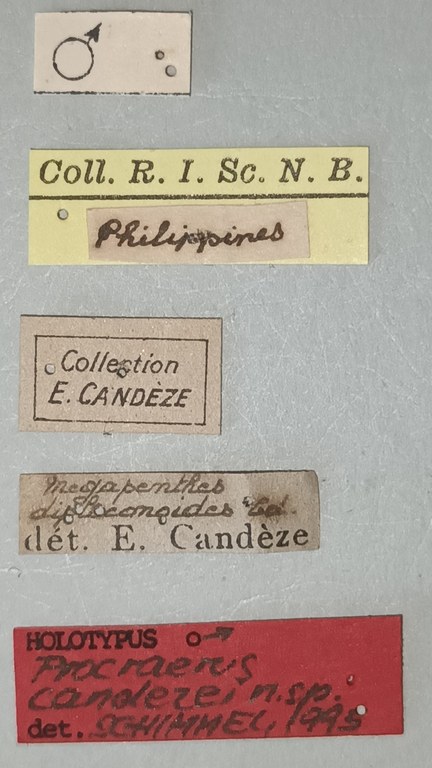 ♂
Coll. R. I. Sc. N. B.
Philippines
Collection
E. CANDÈZE
Megapenthes
diploconoides Cd.
dét. E. Candèze
HOLOTYPUS ♂
Procraerus
candezei n.sp.
det. SCHIMMEL, 1995